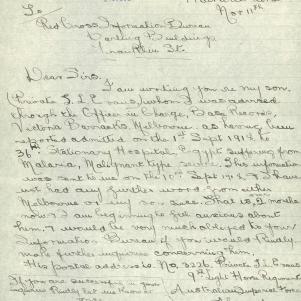 Nov 11th
To
Red Cross Information Bureau
Darling Buildings
Franklin St.
Dear Sirs,
I am writing you re my son,
Private S. L. Evans, whom I was advised
through the Officer in Charge, Base Records,
Victoria Barracks, Melbourne, as having been
reported admitted on the 1st Sept 1918, to
36th Stationary Hospital, Egypt suffering from
Malaria, Malignant type severe. This information
was sent to me on the 10th Sept 1918, & I have
not had any further word from either
Melbourne or my son since. That is, 2 months
now & I am beginning to feel anxious about
him, & would be very much obliged to your
Information Bureau if you would kindly
make further inquiries concerning him.
His postal address is No. 3226, Private S. L. Evans
9th Light Horse Regiment
Australian Imperial Force
If you are successful in your
inquiries kindly let me know